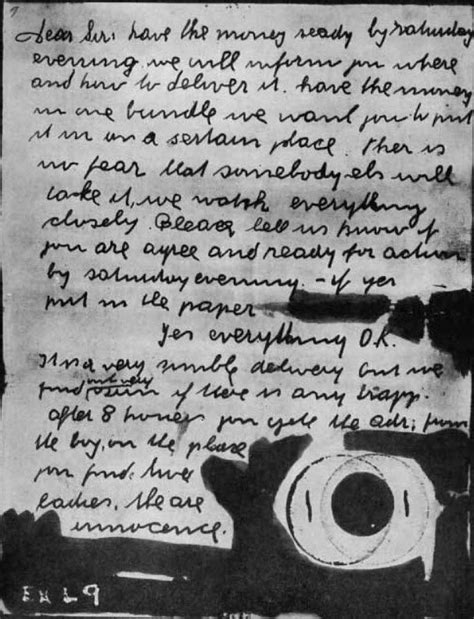 Dear Sir: have the money ready by saturday
evening. we will inform you where
and how to deliver it. have the money
in one bundle we want you to put
it in on a sertain place. ther is
no fear that somebody els will
take it, we watch everything
closely. Please lett us know if
you are agree and ready for action
by saturday evening. - if yes
put in the paper
Yes everything O.K.
It is a very simble delivery but we
find out very if there is any trapp.
after 8 houers you the adr: from
the boy, on the place
you find
ladies. the are
innocence.